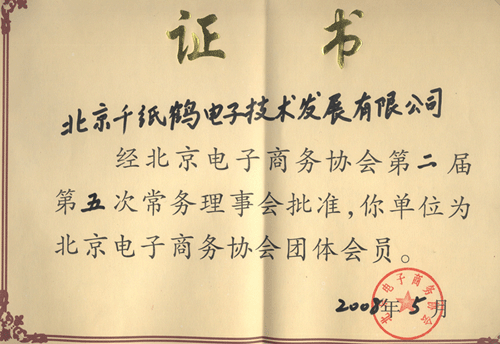 证书
北京千纸鹤电子技术发展有限公司
经北京电子商务协会第二届
第五次常务理事会批准,你单位为
北京电子商务协会团体会员。
北京电子商务协会
2008年5月